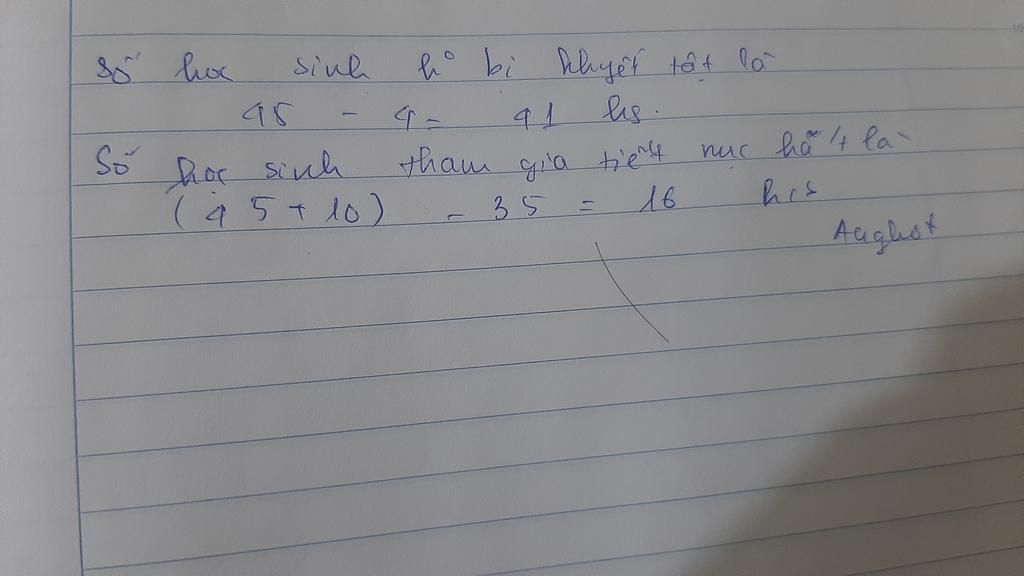 Số học sinh ko bị khuyết tật là
45 - 4 = 41 hs.
Số học sinh tham gia tiết mục hát là
(45 + 10) - 35 = 16 hs